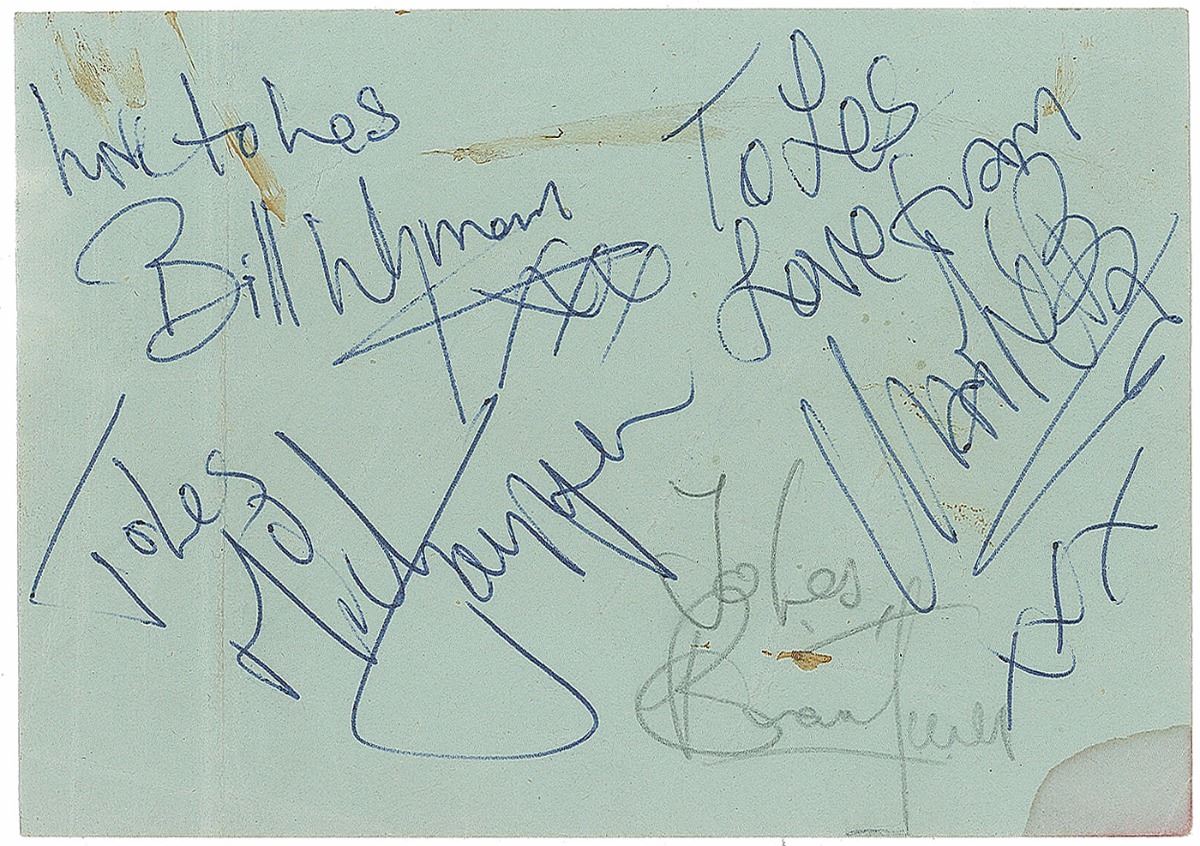 love to Les
Bill Wyman
xxx
To Les
Love from
Charlie
To Les
Mick Jagger
To Les
Brian Jones
xxx